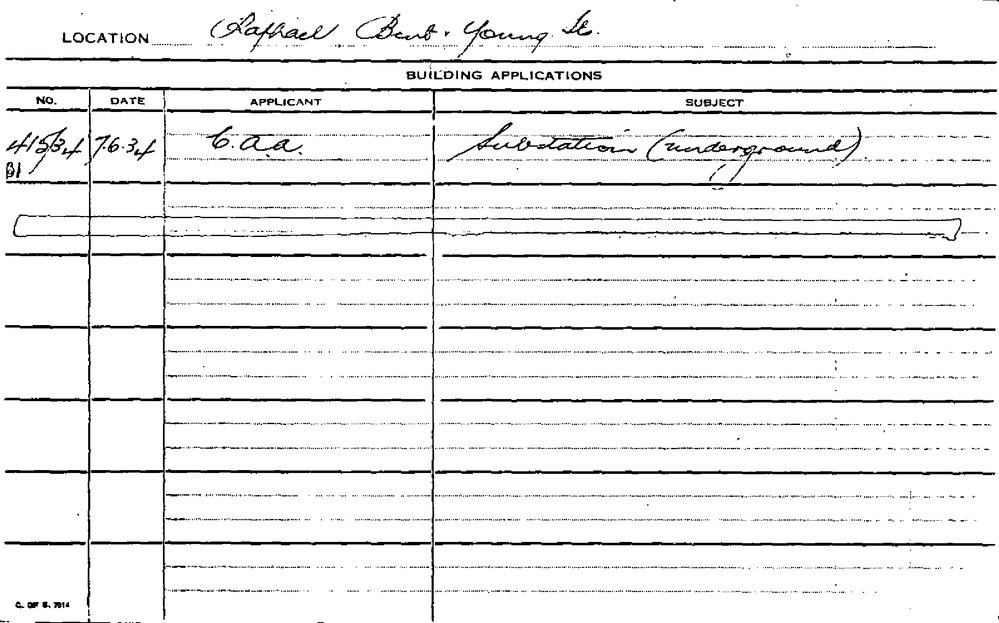 LOCATION Raphael Bent. Young St.
BUILDING APPLICATIONS
NO. DATE APPLICANT SUBJECT
415/34 7.6.34 C.a.a. Substation (underground)
C. OF S. 7014